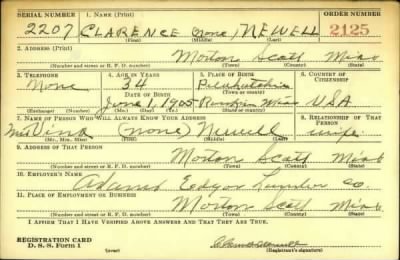 SERIAL NUMBER 1. NAME (Print) ORDER NUMBER
2207 CLARENCE (none) NEWELL 2125
(First) (Middle) (Last)
2. ADDRESS (Print)
Morton Scott Miss
(Number and street or R. F. D. number) (Town) (County) (State)
3. TELEPHONE 4. AGE IN YEARS 5. PLACE OF BIRTH 6. COUNTRY OF CITIZENSHIP
None 34 Pelahatchie
DATE OF BIRTH (Town or county)
June 1, 1905 Rankin Miss USA
(Exchange) (Number) (Mo.) (Day) (Yr.) (State or country)
7. NAME OF PERSON WHO WILL ALWAYS KNOW YOUR ADDRESS 8. RELATIONSHIP OF THAT PERSON
Mrs Vina (none) Newell wife
(Mr., Mrs., Miss) (First) (Middle) (Last)
9. ADDRESS OF THAT PERSON
Morton Scott Miss
(Number and street or R. F. D. number) (Town) (County) (State)
10. EMPLOYER'S NAME
Adams Edgar Lumber Co.
11. PLACE OF EMPLOYMENT OR BUSINESS
Morton Scott Miss
(Number and street or R. F. D. number) (Town) (County) (State)
I AFFIRM THAT I HAVE VERIFIED ABOVE ANSWERS AND THAT THEY ARE TRUE.
REGISTRATION CARD
D. S. S. Form 1 (Registrant's signature)